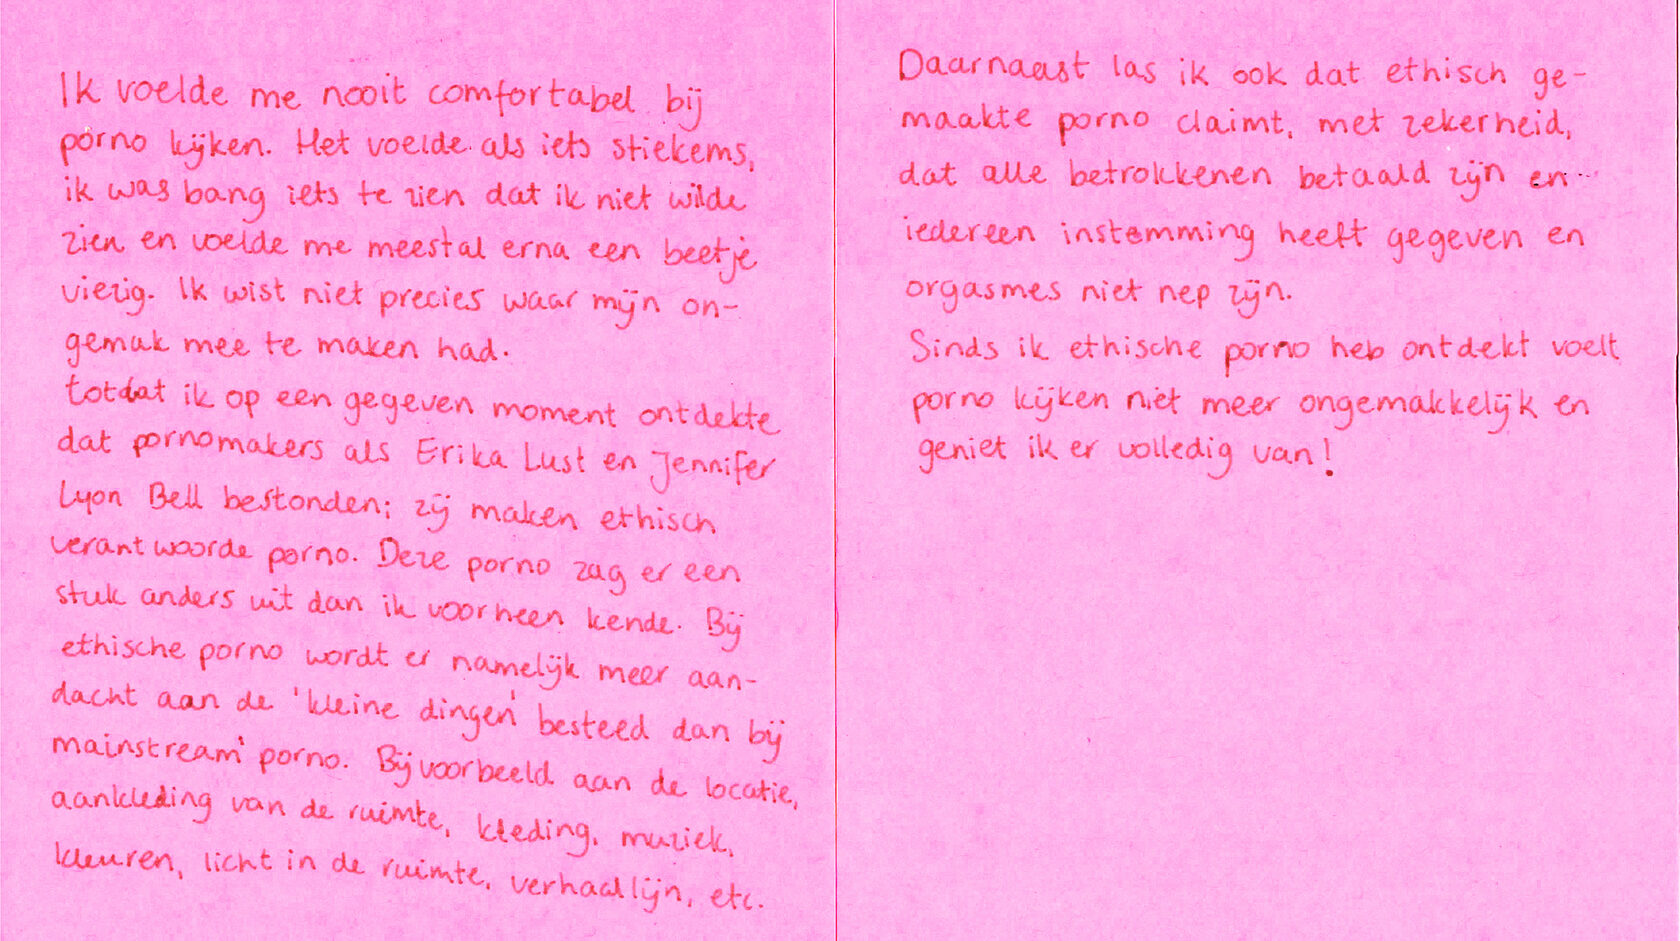 Ik voelde me nooit comfortabel bij
porno kijken. Het voelde als iets stiekems,
ik was bang iets te zien dat ik niet wilde
zien en voelde me meestal erna een beetje
viezig. Ik wist niet precies waar mijn on-
gemak mee te maken had.
totdat ik op een gegeven moment ontdekte
dat pornomakers als Erika Lust en Jennifer
Lyon Bell bestonden; zij maken ethisch
verantwoorde porno. Deze porno zag er een
stuk anders uit dan ik voorheen kende. Bij
ethische porno wordt er namelijk meer aan-
dacht aan de 'kleine dingen' besteed dan bij
mainstream' porno. Bijvoorbeeld aan de locatie,
aankleding van de ruimte, kleding, muziek,
kleuren, licht in de ruimte, verhaallijn, etc.
Daarnaast las ik ook dat ethisch ge-
maakte porno claimt, met zekerheid,
dat alle betrokkenen betaald zijn en
iedereen instemming heeft gegeven en
orgasmes niet nep zijn.
Sinds ik ethische porno heb ontdekt voelt
porno kijken niet meer ongemakkelijk en
geniet ik er volledig van!